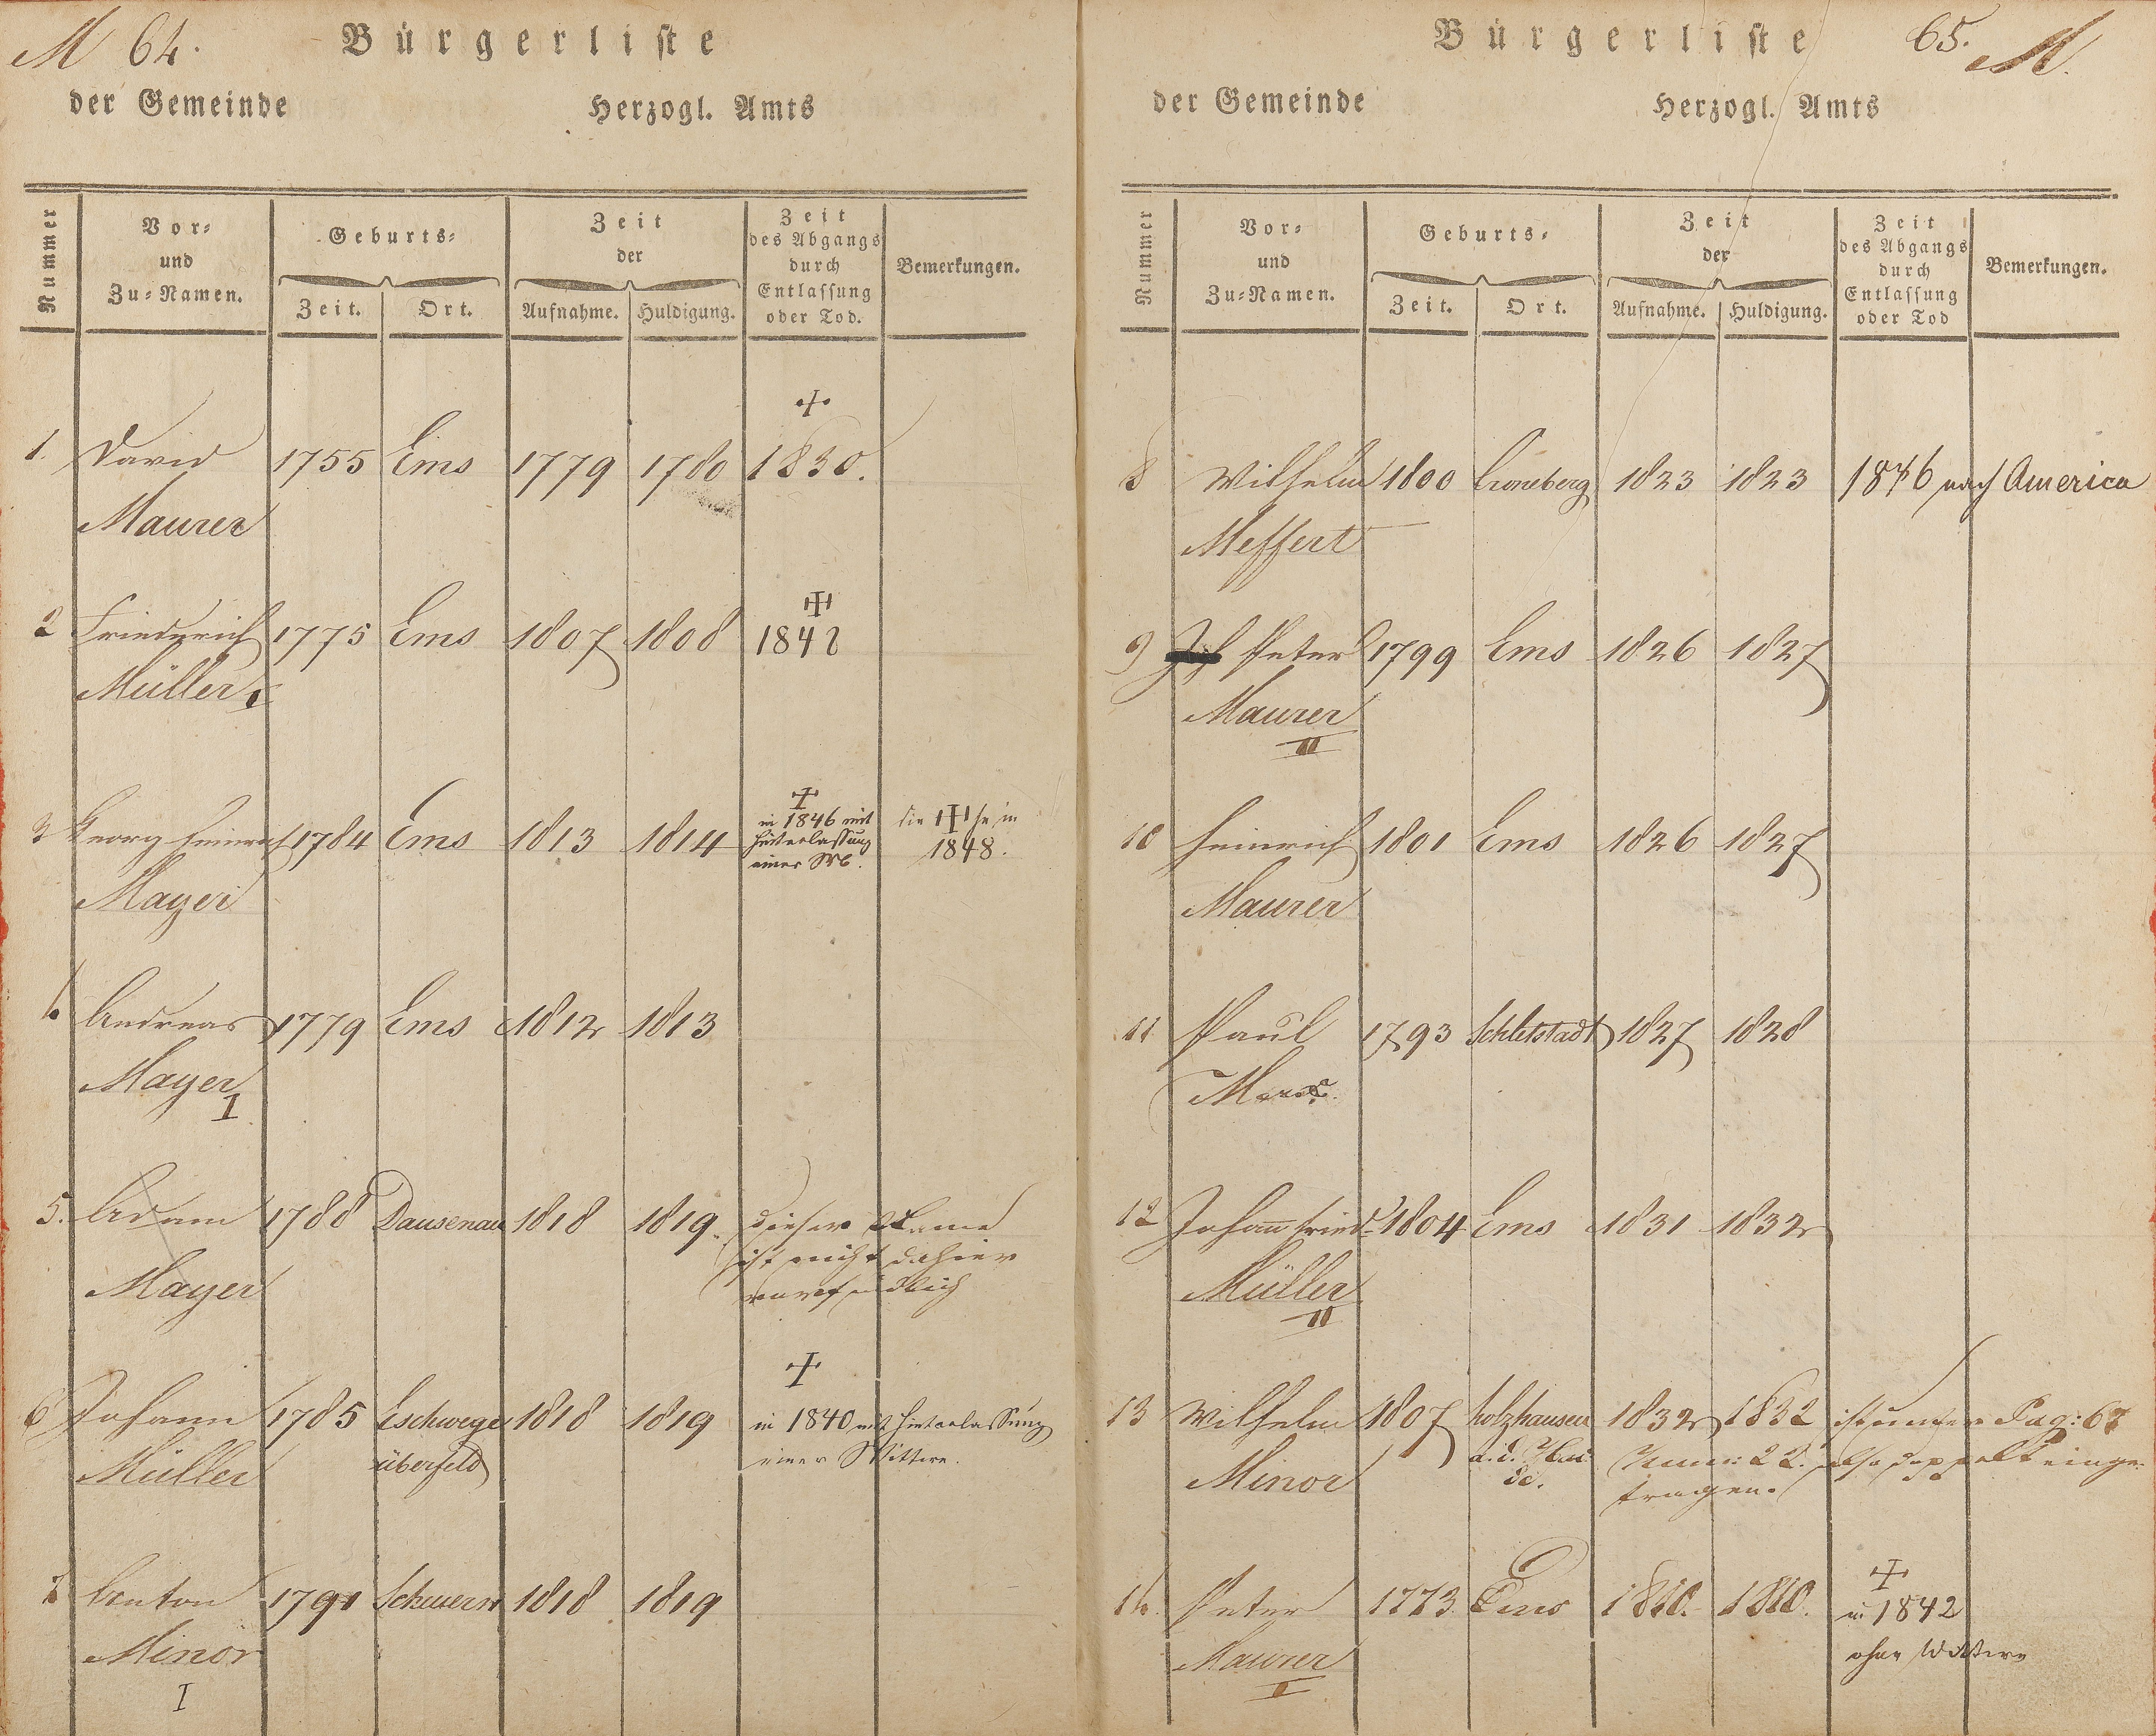 M 64.
Bürgerliste
der Gemeinde Herzogl. Amts
Nummer
Vor-
und
Zu-Namen.
Geburts-
Zeit. Ort.
Zeit
der
Aufnahme. Huldigung.
Zeit
des Abgangs
durch
Entlassung
oder Tod.
Bemerkungen.
+
1. David 1755 Ems 1779 1780 1830.
Maurer
+++
2 Friederich 1775 Ems 1807 1808 1842
Müller
+
3 Georg Heinrich 1784 Ems 1813 1814 in 1846 mit die +++ in
Hinterlassung 1848.
einer
Mayer
4. Andreas 1779 Ems 1812 1813
Mayer
I
5. Adam 1788 Dausenau 1818 1819. Dieser Name
ist nicht dahier
vorfindlich
Mayer
+
6 Johann 1785 Eschweger 1818 1819 in 1840 mit Hinterlassung
überfeld einer Wittwe.
Müller
7 Anton 1791 Scheuern 1818 1819
Minor
I
65. M.
Bürgerliste
der Gemeinde Herzogl. Amts
Nummer
Vor-
und
Zu-Namen.
Geburts-
Zeit. Ort.
Zeit
der
Aufnahme. Huldigung.
Zeit
des Abgangs
durch
Entlassung
oder Tod
Bemerkungen.
8 Wilhelm 1800 Croneberg 1823 1823 1846 nach America
Meffert
9 Peter 1799 Ems 1826 1827
Maurer
II
10 Heinrich 1801 Ems 1826 1827
Maurer
11 Paul 1793 Schletstadt 1827 1828
12 Johann Fried. 1804 Ems 1831 1832
Müller
II
13 Wilhelm 1807 Holzhausen 1832 1832 ist unter Pag: 67
a. d. Hai- Num: 22. also doppelt einge-
de. tragen.
Minor
+
14. Peter 1773 Ems 1810. 1810. in 1842
ohne Wittwe
Maurer
I